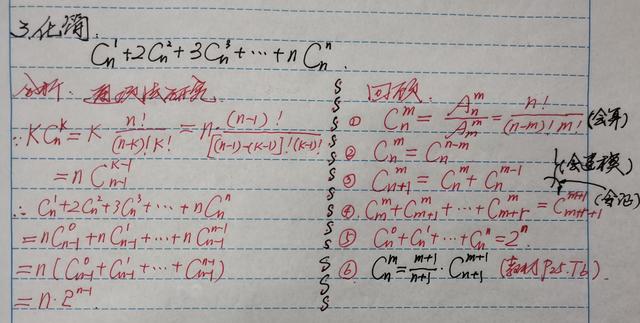 3.化简.
C_n^1+2C_n^2+3C_n^3+…+nC_n^n.
分析:通项法研究
∵ KC_n^K = K n!/((n-K)!K!) = n (n-1)!/([(n-1)-(K-1)]!(K-1)!)
= n C_{n-1}^{K-1}
∴ C_n^1+2C_n^2+3C_n^3+…+nC_n^n
= nC_{n-1}^0+nC_{n-1}^1+…+nC_{n-1}^{n-1}
= n(C_{n-1}^0+C_{n-1}^1+…+C_{n-1}^{n-1})
= n·2^{n-1}
回顾:
① C_n^m = A_n^m/A_m^m = n!/((n-m)!m!) (会算)
② C_n^m = C_n^{n-m}
③ C_{n+1}^m = C_n^m+C_n^{m-1} (会建模)
④ C_m^m+C_{m+1}^m+…+C_{m+r}^m = C_{m+r+1}^{m+1} (会记)
⑤ C_n^0+C_n^1+…+C_n^n = 2^n
⑥ C_n^m = (m+1)/(n+1)·C_{n+1}^{m+1} (教材P25.T6)